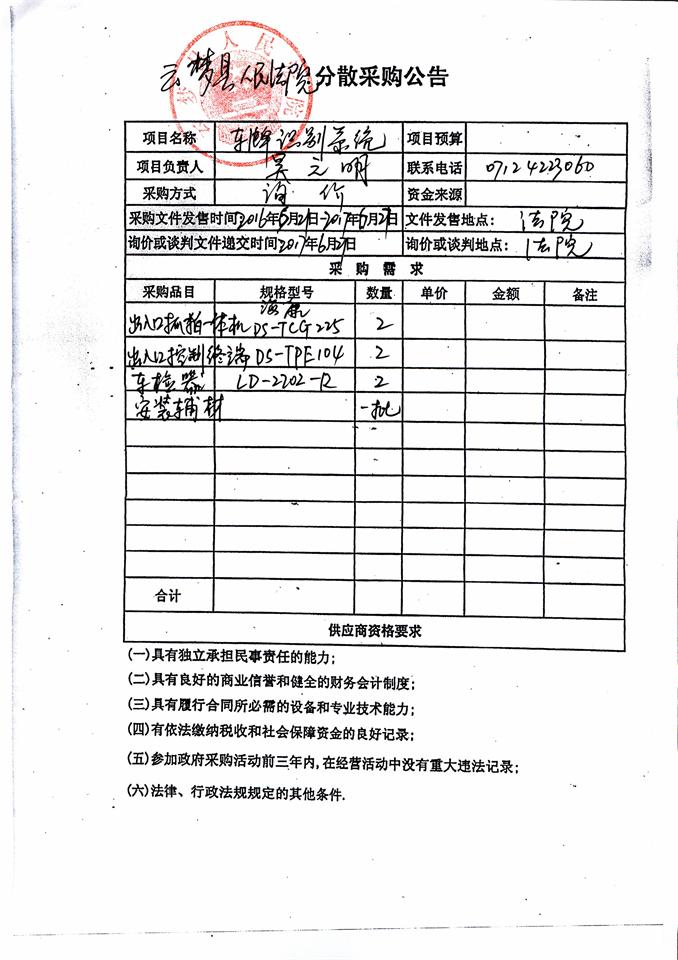 云梦县人民法院分散采购公告
项目名称 车牌识别系统 项目预算
项目负责人 吴元明 联系电话 07124223060
采购方式 询价 资金来源
采购文件发售时间 2016年6月21日-2017年6月27日 文件发售地点: 法院
询价或谈判文件递交时间 2017年6月27日 询价或谈判地点: 法院
采 购 需 求
采购品目 规格型号 数量 单价 金额 备注
海康
出入口抓拍一体机 DS-TCG225 2
出入口控制终端 DS-TPE104 2
车检器 LD-2202-R 2
安装辅材 一批
合计
供应商资格要求
(一)具有独立承担民事责任的能力;
(二)具有良好的商业信誉和健全的财务会计制度;
(三)具有履行合同所必需的设备和专业技术能力;
(四)有依法缴纳税收和社会保障资金的良好记录;
(五)参加政府采购活动前三年内,在经营活动中没有重大违法记录;
(六)法律、行政法规规定的其他条件.